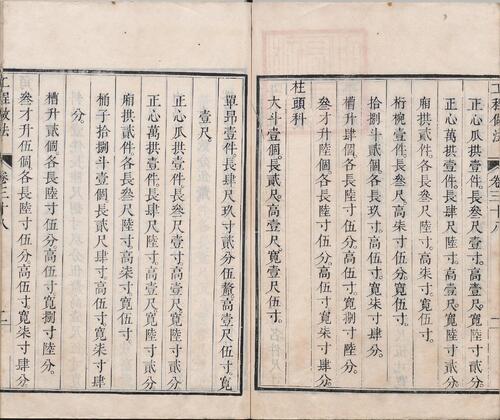 工程做法 卷三十八
正心瓜拱壹件。長叁尺壹寸。高壹尺。寬陸寸貳分。
正心萬拱壹件。長肆尺陸寸。高壹尺。寬陸寸貳分。
廂拱貳件。各長叁尺陸寸。高柒寸。寬伍寸。
桁椀壹件。長叁尺。高柒寸伍分。寬伍寸。
拾捌斗貳個。各長玖寸。高伍寸。寬柒寸肆分。
槽升肆個。各長陸寸伍分。高伍寸。寬捌寸陸分。
叁才升陸個。各長陸寸伍分。高伍寸。寬柒寸肆分。
柱頭科
大斗壹個。長貳尺。高壹尺。寬壹尺伍寸。
單昂壹件。長肆尺玖寸貳分伍釐。高壹尺伍寸。寬
壹尺。
正心瓜拱壹件。長叁尺壹寸。高壹尺。寬陸寸貳分。
正心萬拱壹件。長肆尺陸寸。高壹尺。寬陸寸貳分。
廂拱貳件。各長叁尺陸寸。高柒寸。寬伍寸。
桶子拾捌斗壹個。長貳尺肆寸。高伍寸。寬柒寸肆
分
槽升貳個。各長陸寸伍分。高伍寸。寬捌寸陸分。
叁才升伍個。各長陸寸伍分。高伍寸。寬柒寸肆分
工程做法 卷三十八 二